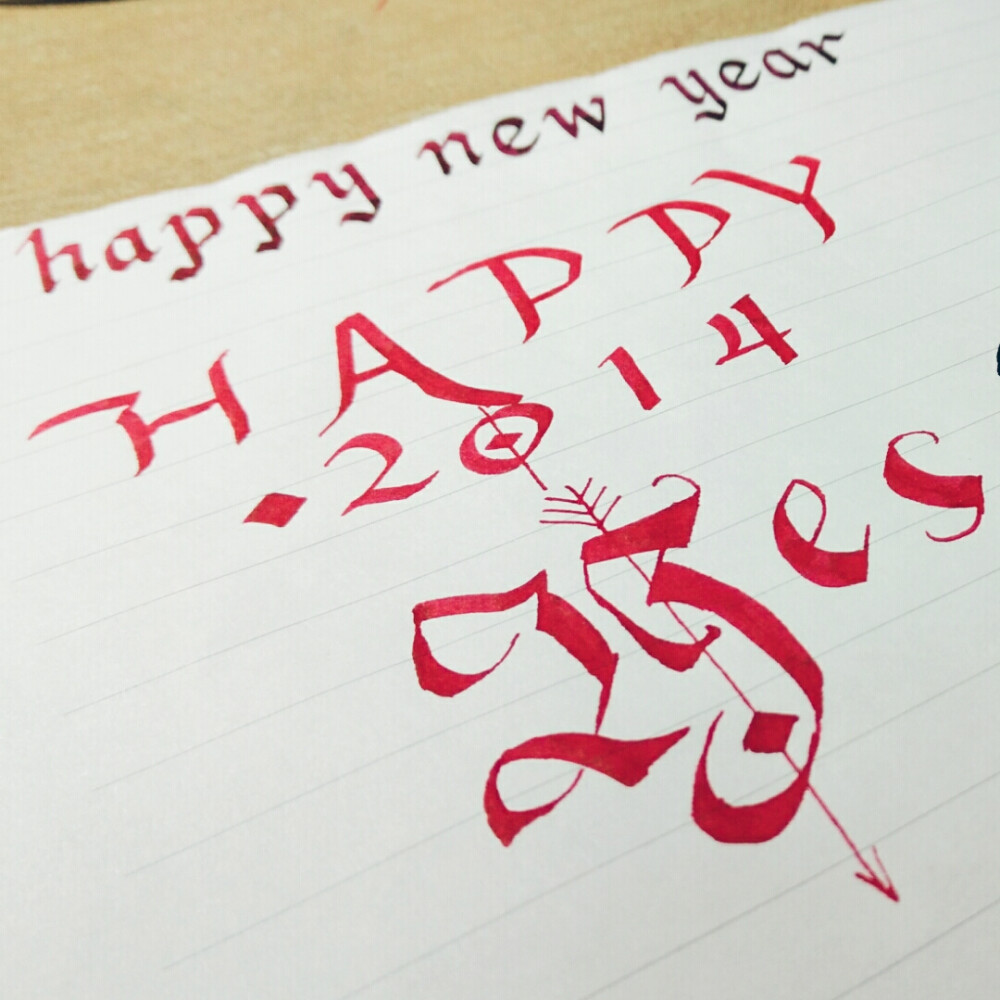 happy new year
HAPPY
2014
25 es